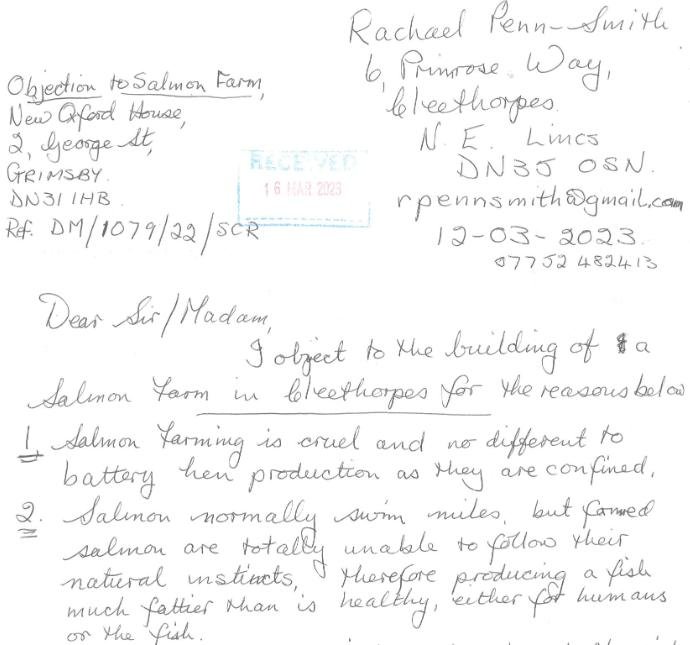 Rachael Penn-Smith
6, Primrose Way,
Cleethorpes.
N. E. Lincs
DN35 0SN.
rpennsmith@gmail.com
12-03-2023.
07752 482413
Objection to Salmon Farm,
New Oxford House,
2, George St,
GRIMSBY.
DN31 1HB
Ref. DM/1079/22/SCR
RECEIVED
16 MAR 2023
Dear Sir/Madam,
I object to the building of a
Salmon Farm in Cleethorpes for the reasons below
1 Salmon Farming is cruel and no different to
battery hen production as they are confined.
2. Salmon normally swim miles, but farmed
salmon are totally unable to follow their
natural instincts, therefore producing a fish
much fattier than is healthy, either for humans
or the fish.